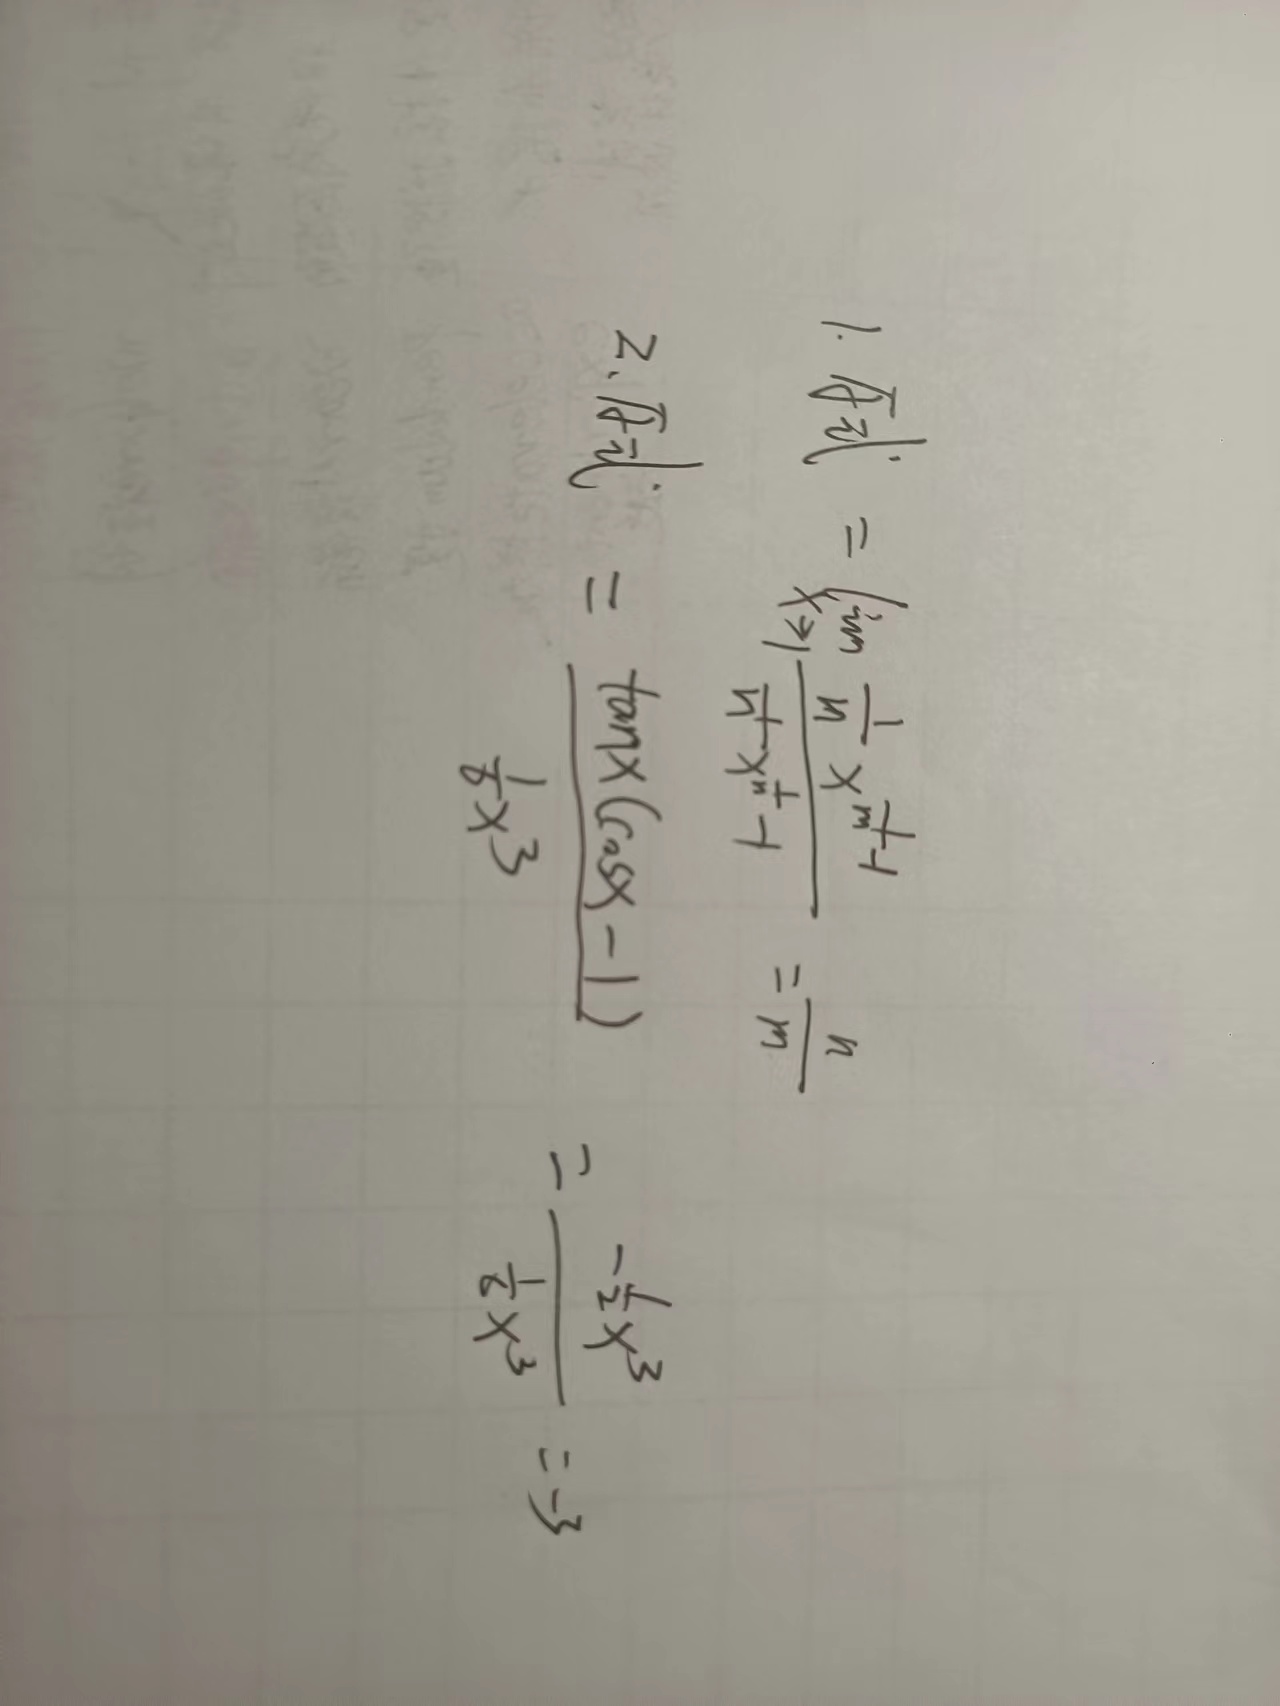 1. 原式 = lim x→1 (1/n x^(1/m - 1)) / (1/n x^(1/n - 1)) = n/m
2. 原式 = tanx(cosx - 1) / (1/6 x^3) = (-1/2 x^3) / (1/6 x^3) = -3